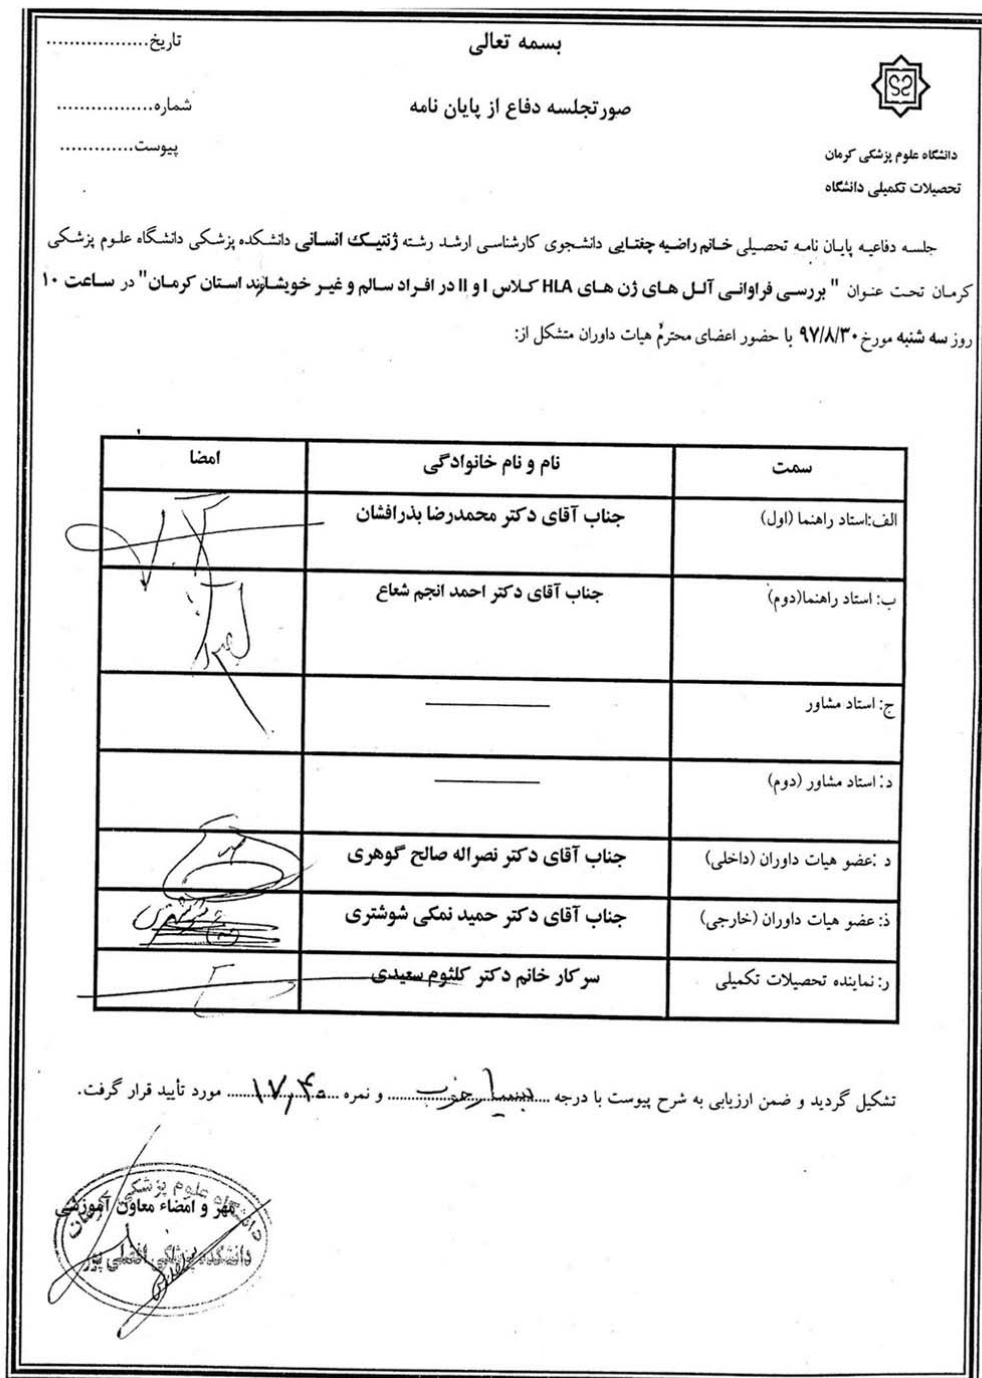 بسمه تعالی
تاریخ..................
صورتجلسه دفاع از پایان نامه
شماره.................
پیوست.............
دانشگاه علوم پزشکی کرمان
تحصیلات تکمیلی دانشگاه
جلسه دفاعیه پایان نامه تحصیلی خانم راضیه چغتایی دانشجوی کارشناسی ارشد رشته ژنتیک انسانی دانشکده پزشکی دانشگاه علوم پزشکی
کرمان تحت عنوان " بررسی فراوانی آلل های ژن های HLA کلاس I و II در افراد سالم و غیر خویشاوند استان کرمان" در ساعت ۱۰
روز سه شنبه مورخ ۹۷/۸/۳۰ با حضور اعضای محترم هیات داوران متشکل از:
سمت نام و نام خانوادگی امضا
الف:استاد راهنما (اول) جناب آقای دکتر محمدرضا بذرافشان
ب: استاد راهنما(دوم) جناب آقای دکتر احمد انجم شعاع
ج: استاد مشاور
د: استاد مشاور (دوم)
د :عضو هیات داوران (داخلی) جناب آقای دکتر نصراله صالح گوهری
ذ: عضو هیات داوران (خارجی) جناب آقای دکتر حمید نمکی شوشتری
ر: نماینده تحصیلات تکمیلی سرکار خانم دکتر کلثوم سعیدی
تشکیل گردید و ضمن ارزیابی به شرح پیوست با درجه بسیار خوب و نمره ۱۷٫۴۰ مورد تأیید قرار گرفت.
دانشگاه علوم پزشکی کرمان
مهر و امضاء معاون آموزشی
دانشکده پزشکی افضلی پور